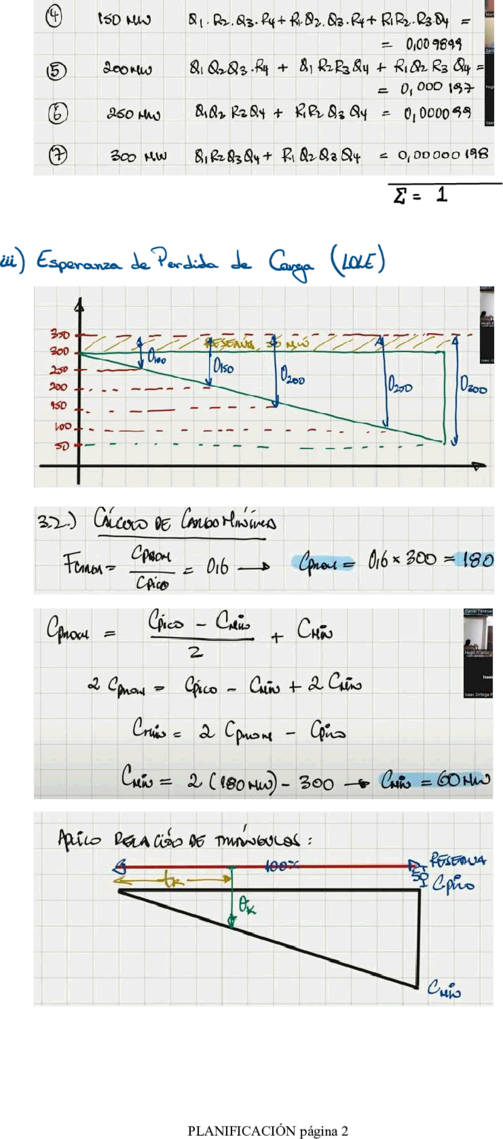 ④ 150 MW Q1.R2.Q3.R4 + R1.Q2.Q3.R4 + R1R2.R3Q4 =
= 0,009899
⑤ 200MW Q1Q2Q3.R4 + Q1R2R3Q4 + R1Q2R3Q4 =
= 0,000197
⑥ 250 MW Q1Q2R3Q4 + R1R2Q3Q4 = 0,000099
⑦ 300 MW Q1R2Q3Q4 + R1Q2Q3Q4 = 0,00000198
Σ = 1
iii) Esperanza de Perdida de Carga (LOLE)
350
300
RESERVA 50 MW
250
200
150
100
50
O100
O150
O200
O250
O300
3.2.) CÁLCULO DE CARGA MÍNIMA
Fcarga = CPROM / CPICO = 0,6 → CPROM = 0,6 × 300 = 180
CPROM = CPICO - CMÍN / 2 + CMÍN
2 CPROM = CPICO - CMÍN + 2 CMÍN
CMÍN = 2 CPROM - CPICO
CMÍN = 2 (180 MW) - 300 → CMÍN = 60 MW
APLICO RELACIÓN DE TRIÁNGULOS:
100%
RESERVA
50
CPICO
tk
Ok
CMÍN
PLANIFICACIÓN página 2